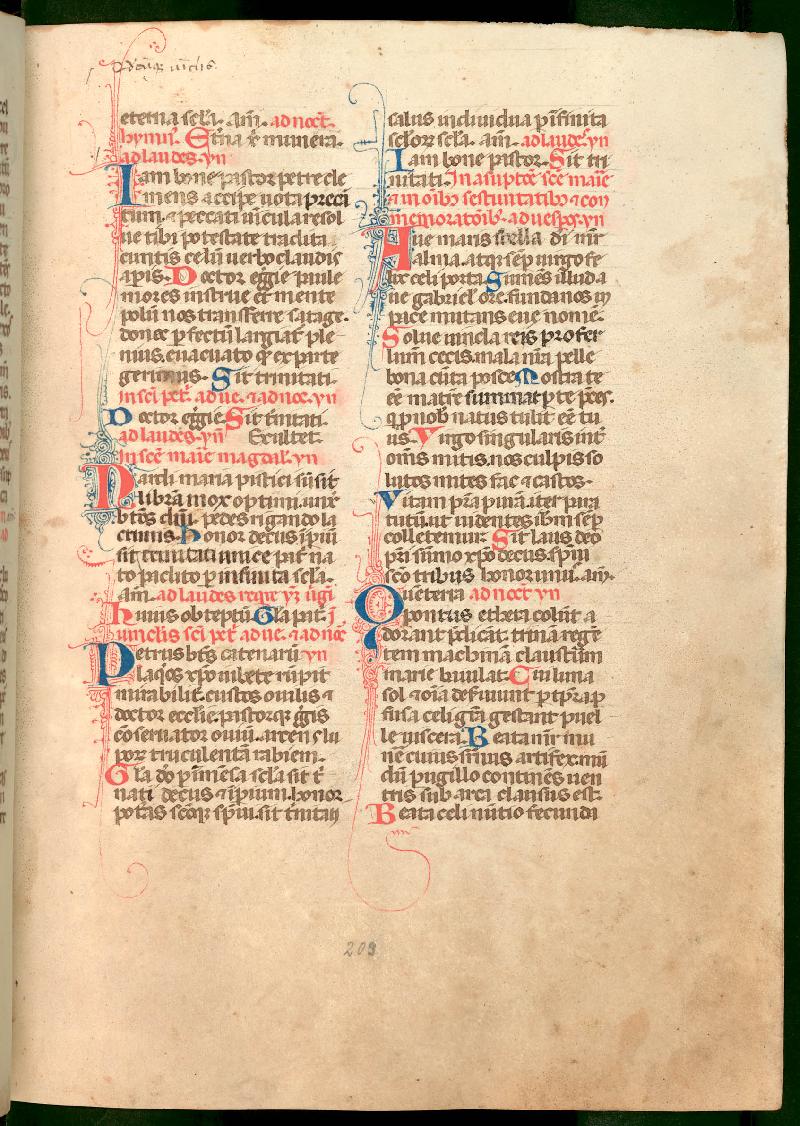 eterna scła. am̄. ad noct̄.
hymn᷒. Et̄na x̄ munera.
ad laudes. yn̄
Iam bone pastor petre cle
mens accipe uota preci
tum. ⁊ peccati uincula resol
ue tibi potestate tradita
cunctis celū uerbo claudis
apis. Doctor eḡgie paule
mores instrue et mente
polū nos transferre satage.
donec ꝑfectū largiat᷑ ple
nius. euacuato qđ ex parte
gerimus. Sit trinitati.
In scī pet̄. ad ue. ⁊ ad noc. yn̄
Doctor eḡgie. Sit t̄nitati.
ad laudes. yn̄ Exultet.
In scē marie magdal̄. yn̄
Nardi maria pistici sūsit
libram mox optimi. unx̄
bt̄os dn̄i pedes rigando la
crimis. Honor decus īpiū
sit trinitati unice pat̄ na
to ꝑclito ꝑ infinita scła.
am̄. ad laudes
Huius obteptū. Gła pat̄. J
uinclis scī pet̄. ad ue. ⁊ ad noc̄
Petrus bt̄s catenarū yn̄
laq̄os xp̄o iubete rupit
mirabilit̄. custos ouilis ⁊
doctor ecclīe. pastorqꝫ ḡgis
cōseruator ouiū. arcens lu
porꝝ truculentā rabiem.
Gła dō ꝑ īmēsa scła sit t̄
nati decus ⁊ īpium. honor
potās scōqꝫ sp̄ui. sit t̄nitati
salus indiuidua ꝑ īfinita
scłorꝝ scła. am̄. ad laudes. yn̄
Iam bone pastor. Sit tri
nitati. In asūptōe scē marie
⁊ in oīb᷒ festiuitatib᷒ ⁊ con
memoratōīb᷒. ad uesꝑos. yn̄
Aue maris stella di mr̄
alma. atqꝫ sēp uirgo fe
lix celi porta. Sumēs illud a
ue gabriel᷒ ore. funda nos ī
pace mutans eue nomē.
Solue uincla reis profer
lum̄ cecis. mala nr̄a pelle
bona cūta posce. Mostra te
eē matrē summat ꝑ te p̄ces.
q̄ pnob natus tulit eē tu
us. Virgo singularis int̄
om̄s mitis. nos culpis so
lutos mites fac ⁊ castos.
Vitam p̄sta purā. iter para
tutū. ut uidentes ihm sēp
colletemur. Sit laus deo
pr̄i sūmo xp̄o decus. sp̄ui
scō tribus honor unu᷒. am̄.
Que terra ad noct̄. yn̄
pontus ethera colūt a
dorant p̄dicāt. trinā regē
tem machinā claustrum
marie baiulat. Cui luna
sol ⁊ oīa deseruiunt ꝑ tp̄ra ꝑ
fusa celi gr̄a gestant puel
le uiscera. Beata mr̄ mu
nē cuius sup̄nus artifex. mū
dū pugillo continēs uen
tris sub arca clausus est.
Beata celi nūtio fecundi
209